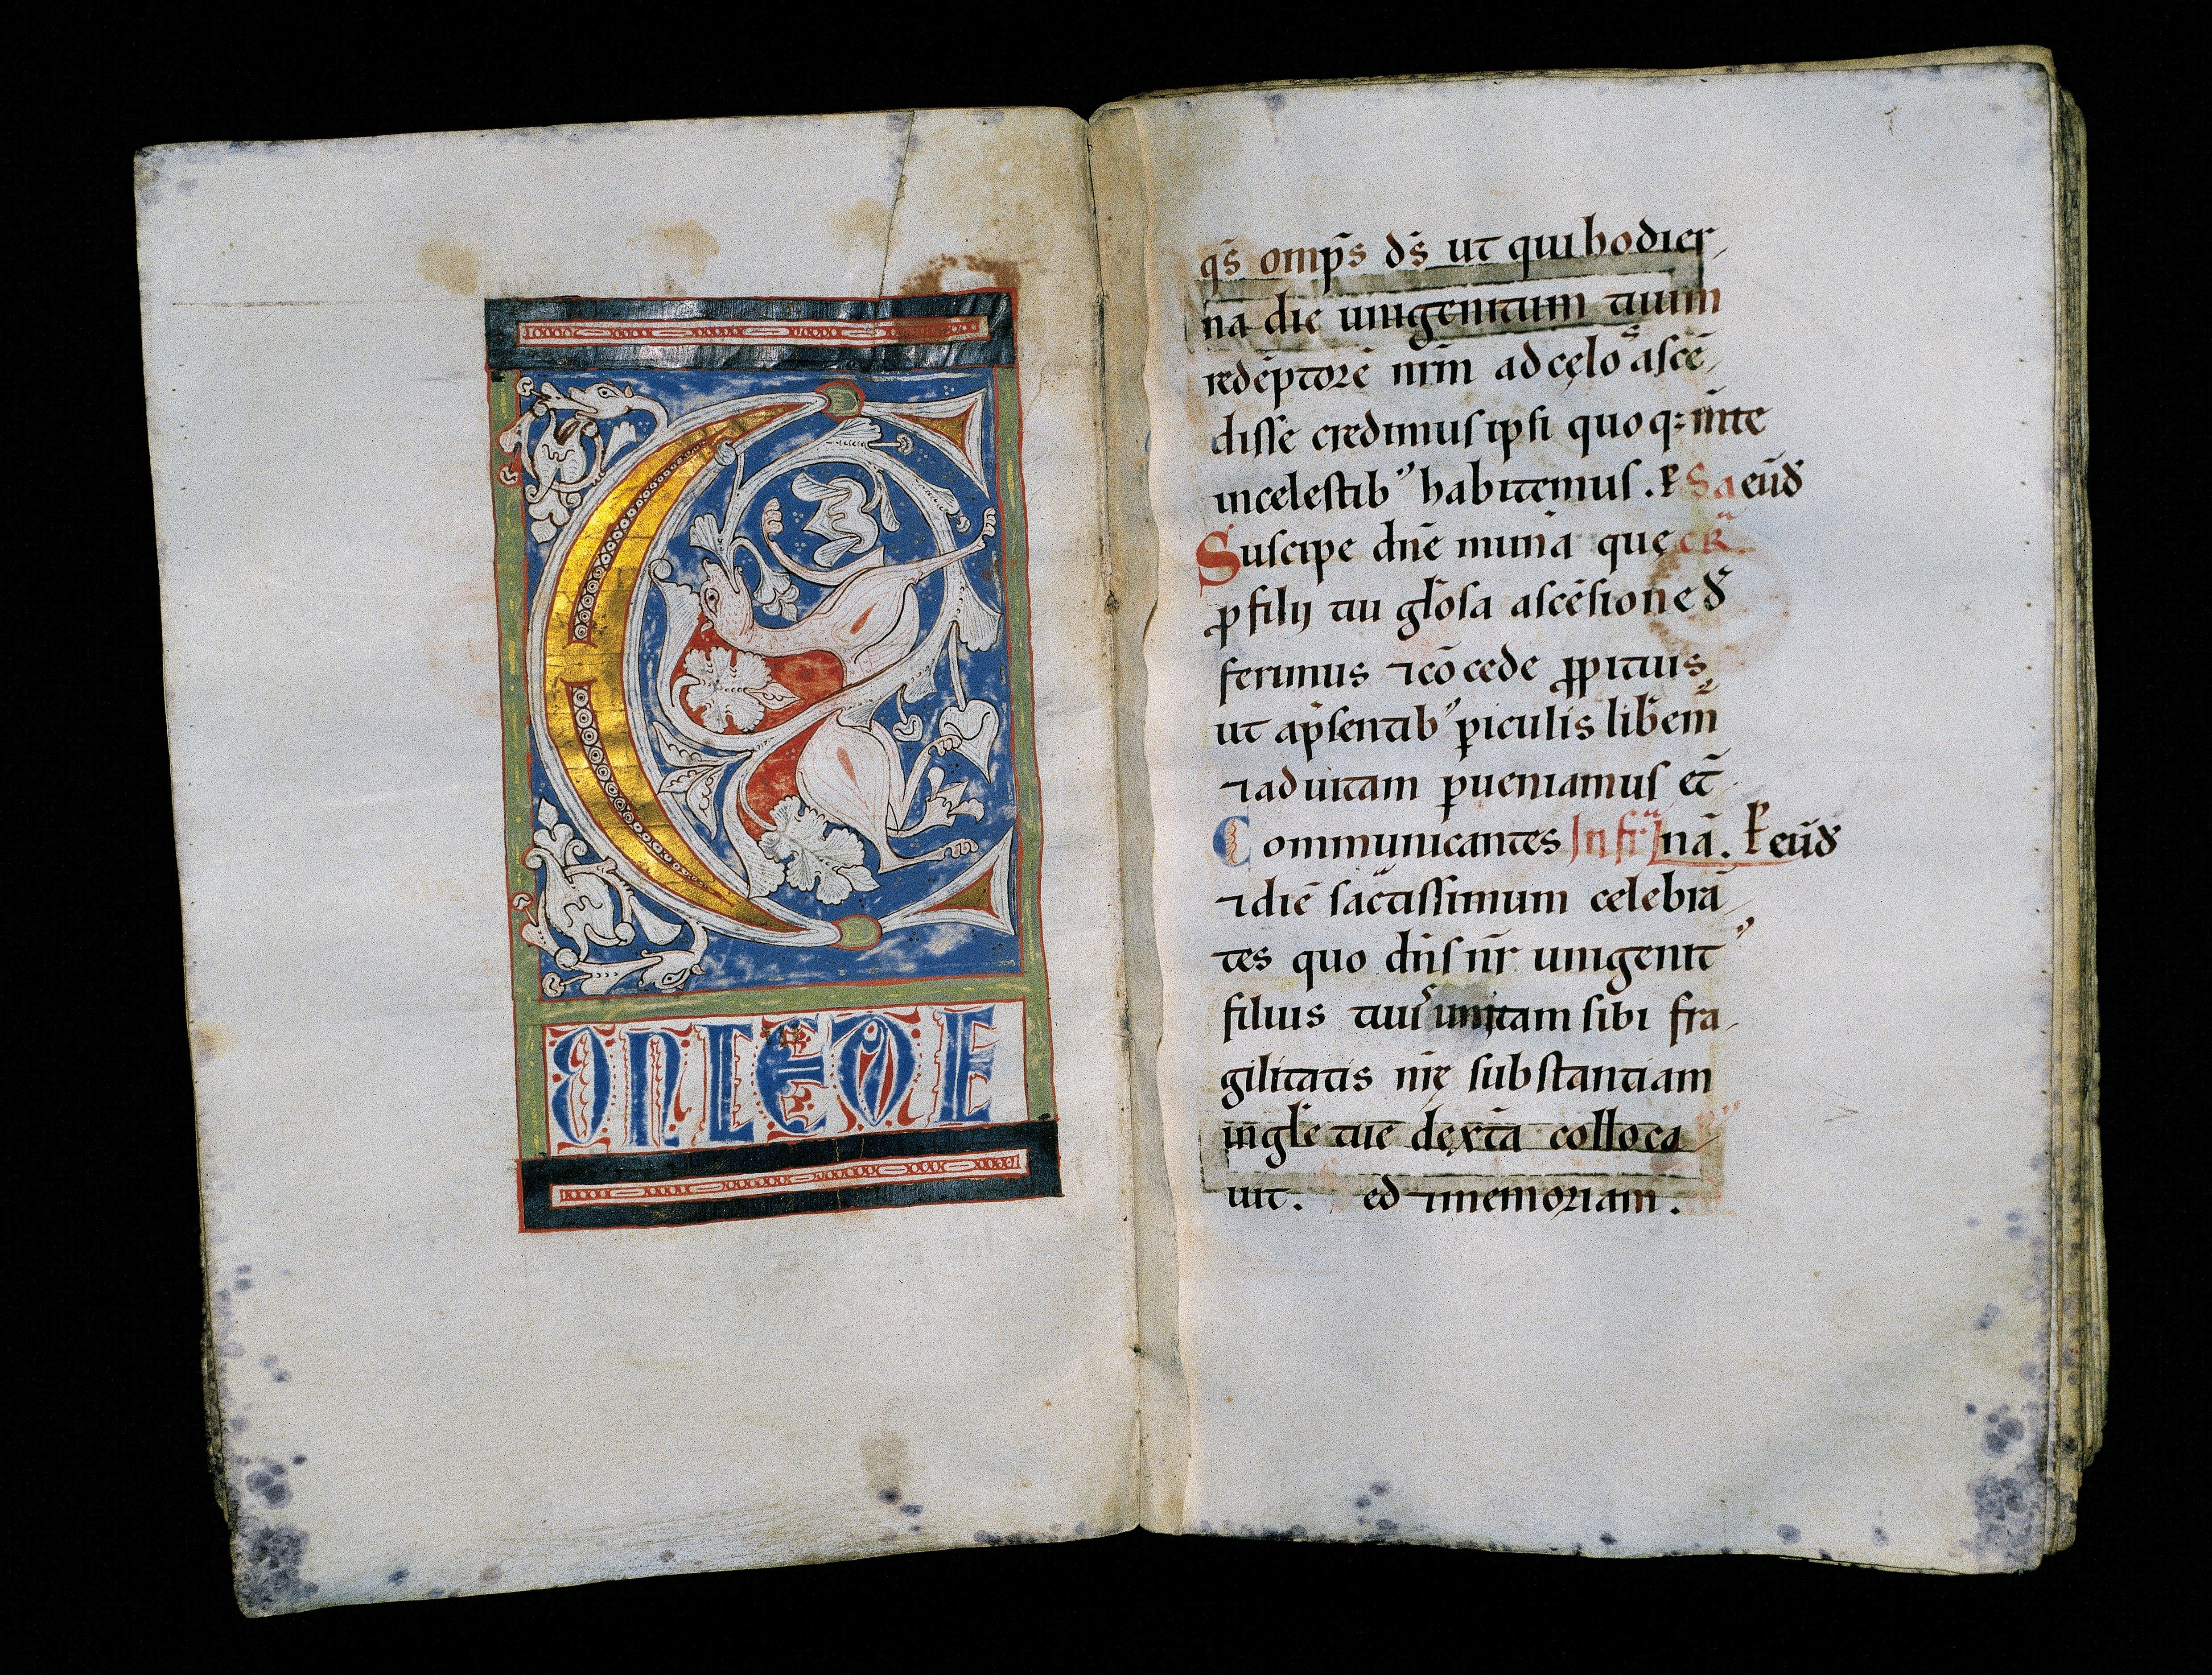 C
ONCEDE
qs̄ omp̄s ds̄ ut qui hodier-
na die unigenitum tuum
redēptorē nrm̄ ad cęlos ascē-
disse credimus ipsi quoq: m̄te
in celestib⁹ habitemus. P eūd
Suscipe dn̄e munͣa quę SECR̄.
ꝓ filii tui gl̄osa ascēsione d̄
ferimus ⁊ cōcede ꝓpitius
ut a p̄sentib⁹ ꝑiculis libem̄
⁊ ad uitam ꝑueniamus et̄-
Communicantes Infrͣ nā. P eūd
⁊ diē sacͣtissimum celebrā-
tes quo dn̄s nr̄ unigenit⁹
filius tuus unitam sibi fra-
gilitatis nr̄ę substantiam
in gl̄e tue dextͣa colloca-
uit. ed ⁊ memoriam.